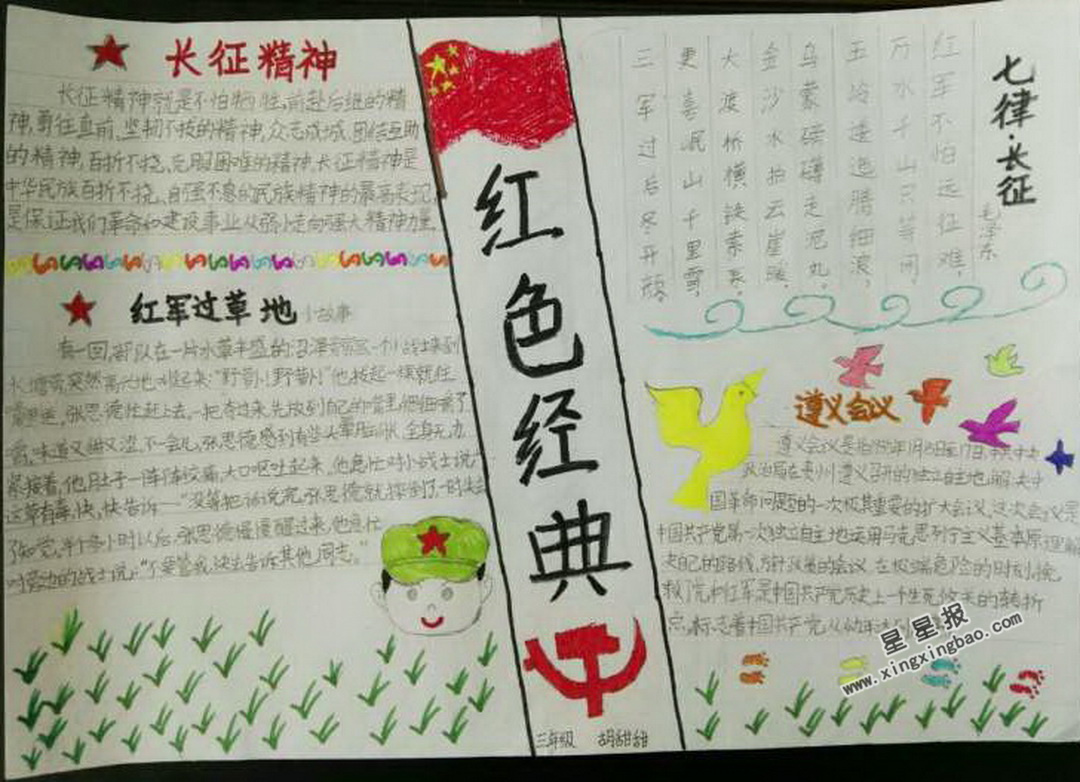 长征精神
长征精神就是不怕牺牲,前赴后继的精
神,勇往直前,坚韧不拔的精神,众志成城,团结互助
的精神,百折不挠,克服困难的精神.长征精神是
中华民族百折不挠、自强不息的民族精神的最高表现,
是保证我们革命和建设事业从弱小走向强大精神力量.
红军过草地 小故事
有一回,部队在一片水草丰盛的沼泽 一个小战士来到
水塘旁,突然高兴地喊起来:"野萄卜!野萄卜!"他拔起一棵就往
嘴里送,张思德忙赶上去,一把夺过来,先放到自己的嘴里,细细嚼了
嚼,味道又甜又涩,不一会儿,张思德感到有些头晕脑胀,全身无力,
紧接着,他肚子一阵阵绞痛,大口呕吐起来,他急忙对小战士说:"
这草有毒,快,快告诉——"没等把话说完,张思德就摔倒了,一时失去
了知觉,半个多小时以后,张思德慢慢醒过来,他急忙
对旁边的战士说:"不要管我,快去告诉其他同志."
红色经典
三年级 胡甜甜
七律·长征
毛泽东
红军不怕远征难,
万水千山只等闲,
五岭逶迤腾细浪,
乌蒙磅礴走泥丸,
金沙水拍云崖暖,
大渡桥横铁索寒,
更喜岷山千里雪,
三军过后尽开颜,
遵义会议
遵义会议是指1935年1月15日至17日,中共中央
政治局在贵州遵义召开的独立自主地解决中
国革命问题的一次极其重要的扩大会议,这次会议是
中国共产党第一次独立自主地运用马克思列宁主义基本原理解
决自己的路线,方针政策的会议.在极端危险的时刻,挽
救了党和红军,是中国共产党历史上一个生死攸关的转折
点,标志着中国共产党从幼年
星星报
www.xingxingbao.com